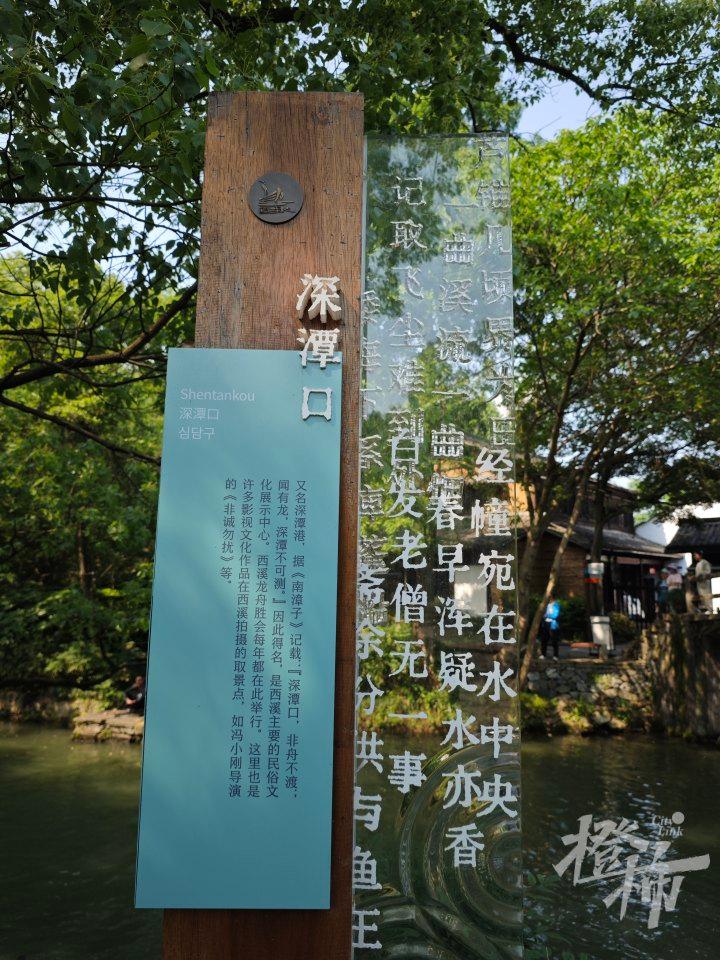 深潭口
Shentankou
深潭口
심담구
又名深潭港，据《南漳子》记载：『深潭口，非舟不渡；
闻有龙，深潭不可测。』因此得名，是西溪主要的民俗文
化展示中心。西溪龙舟胜会每年都在此举行。这里也是
许多影视文化作品在西溪拍摄的取景点，如冯小刚导演
的《非诚勿扰》等。
几顷
一曲溪流一曲
记取飞尘难到
经幢宛在水中央
春早浑疑水亦香
白发老僧无一事
斋余分供与鱼王
City Link
橙柿